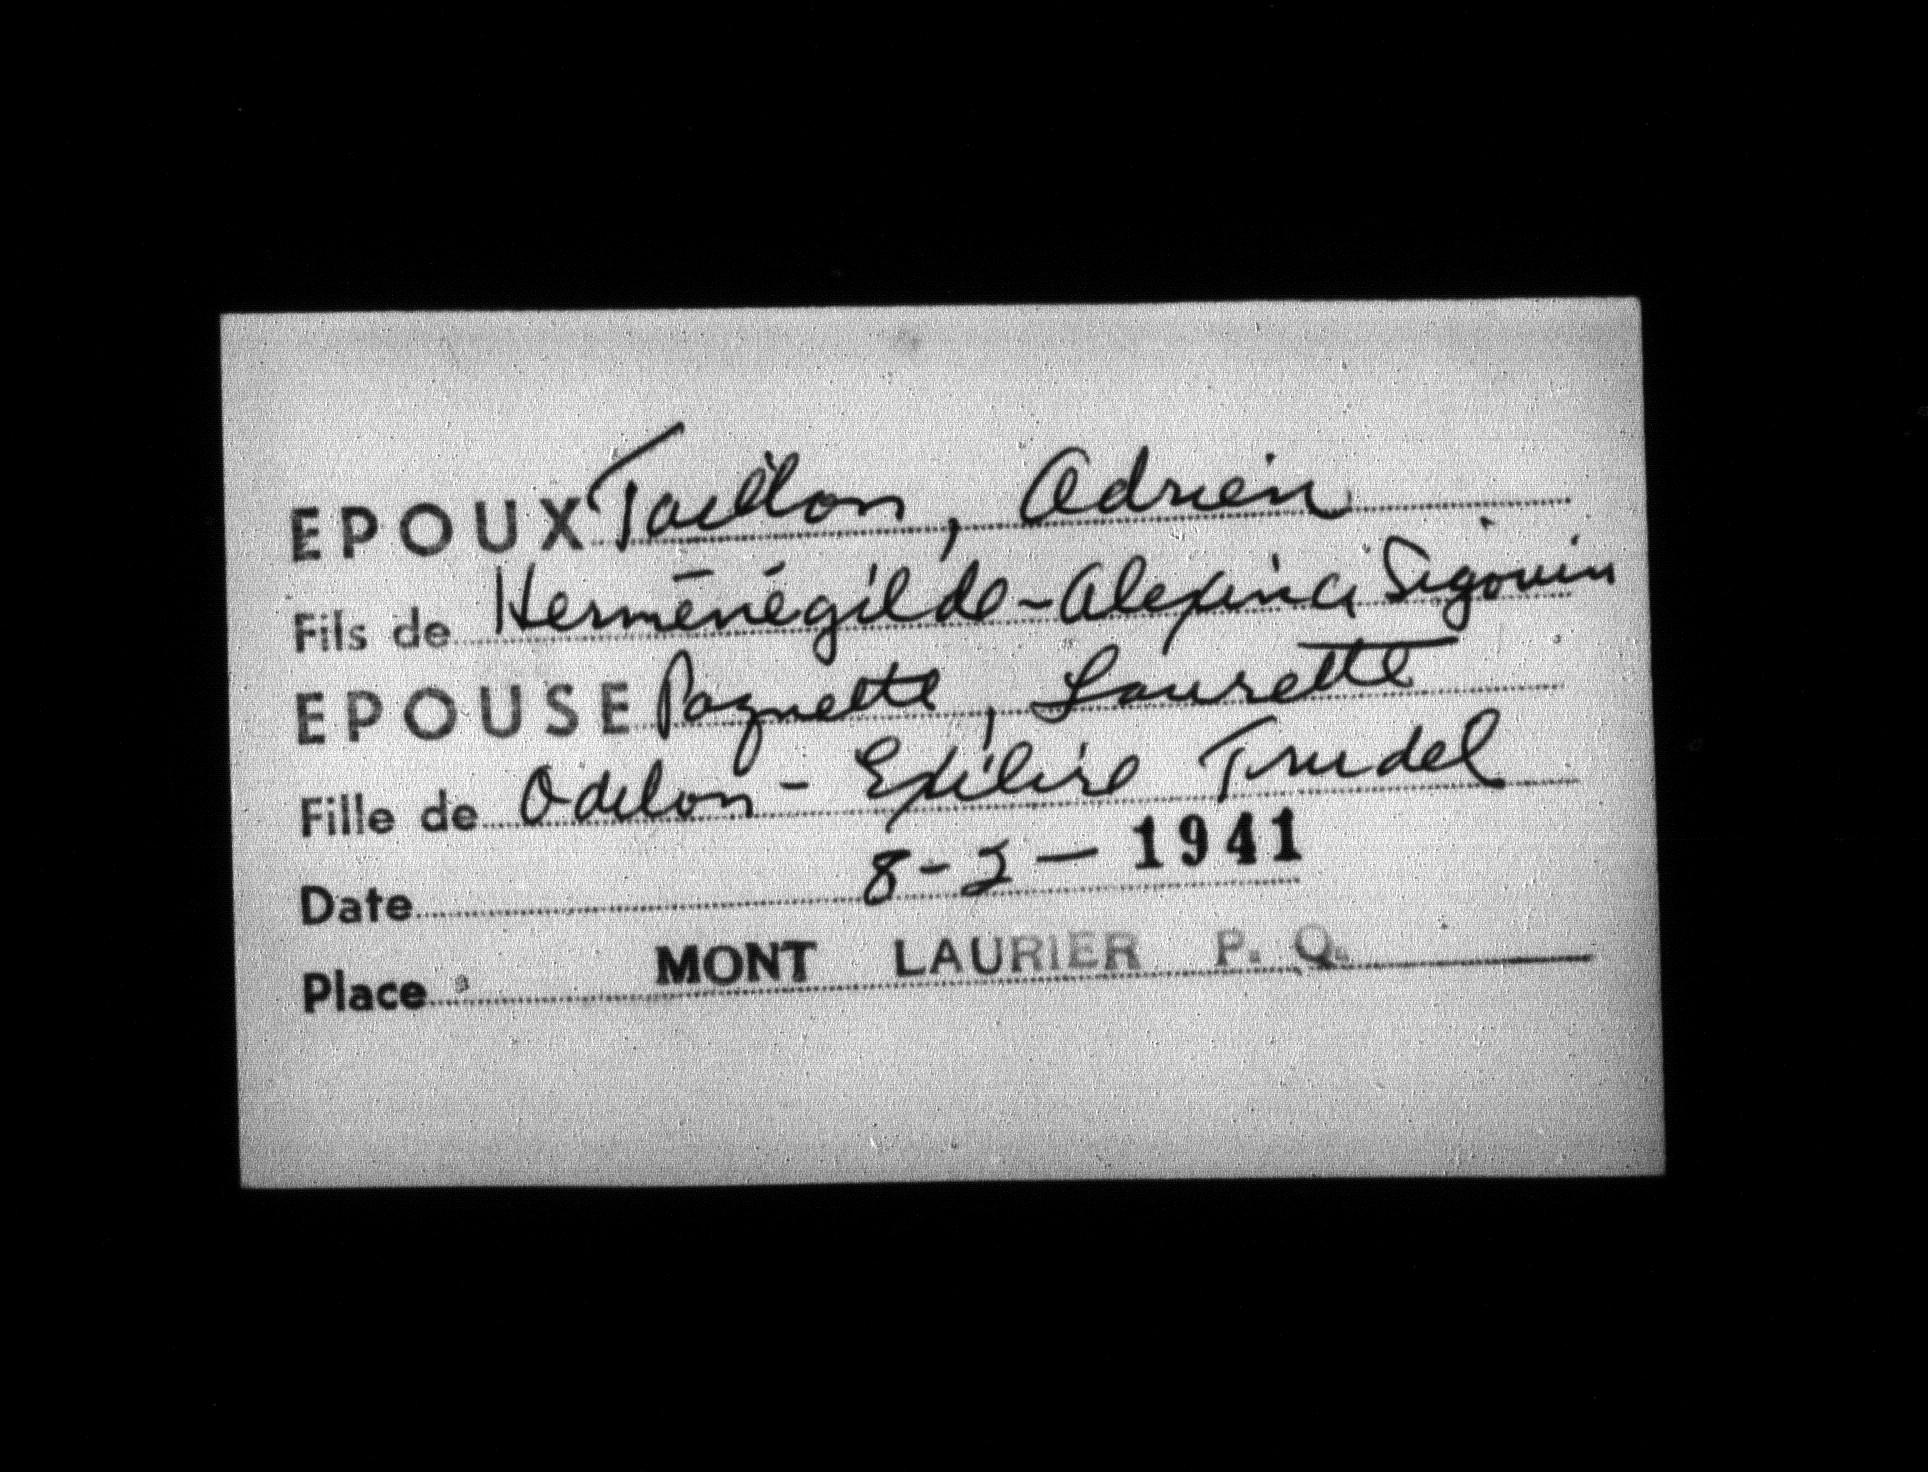 EPOUX Taillon, Adrien
Fils de Herménégilde - Alexina Sigouin
EPOUSE Paquette, Laurette
Fille de Odilon - Exilire Trudel
Date 8-2-1941
Place MONT LAURIER P. Q.